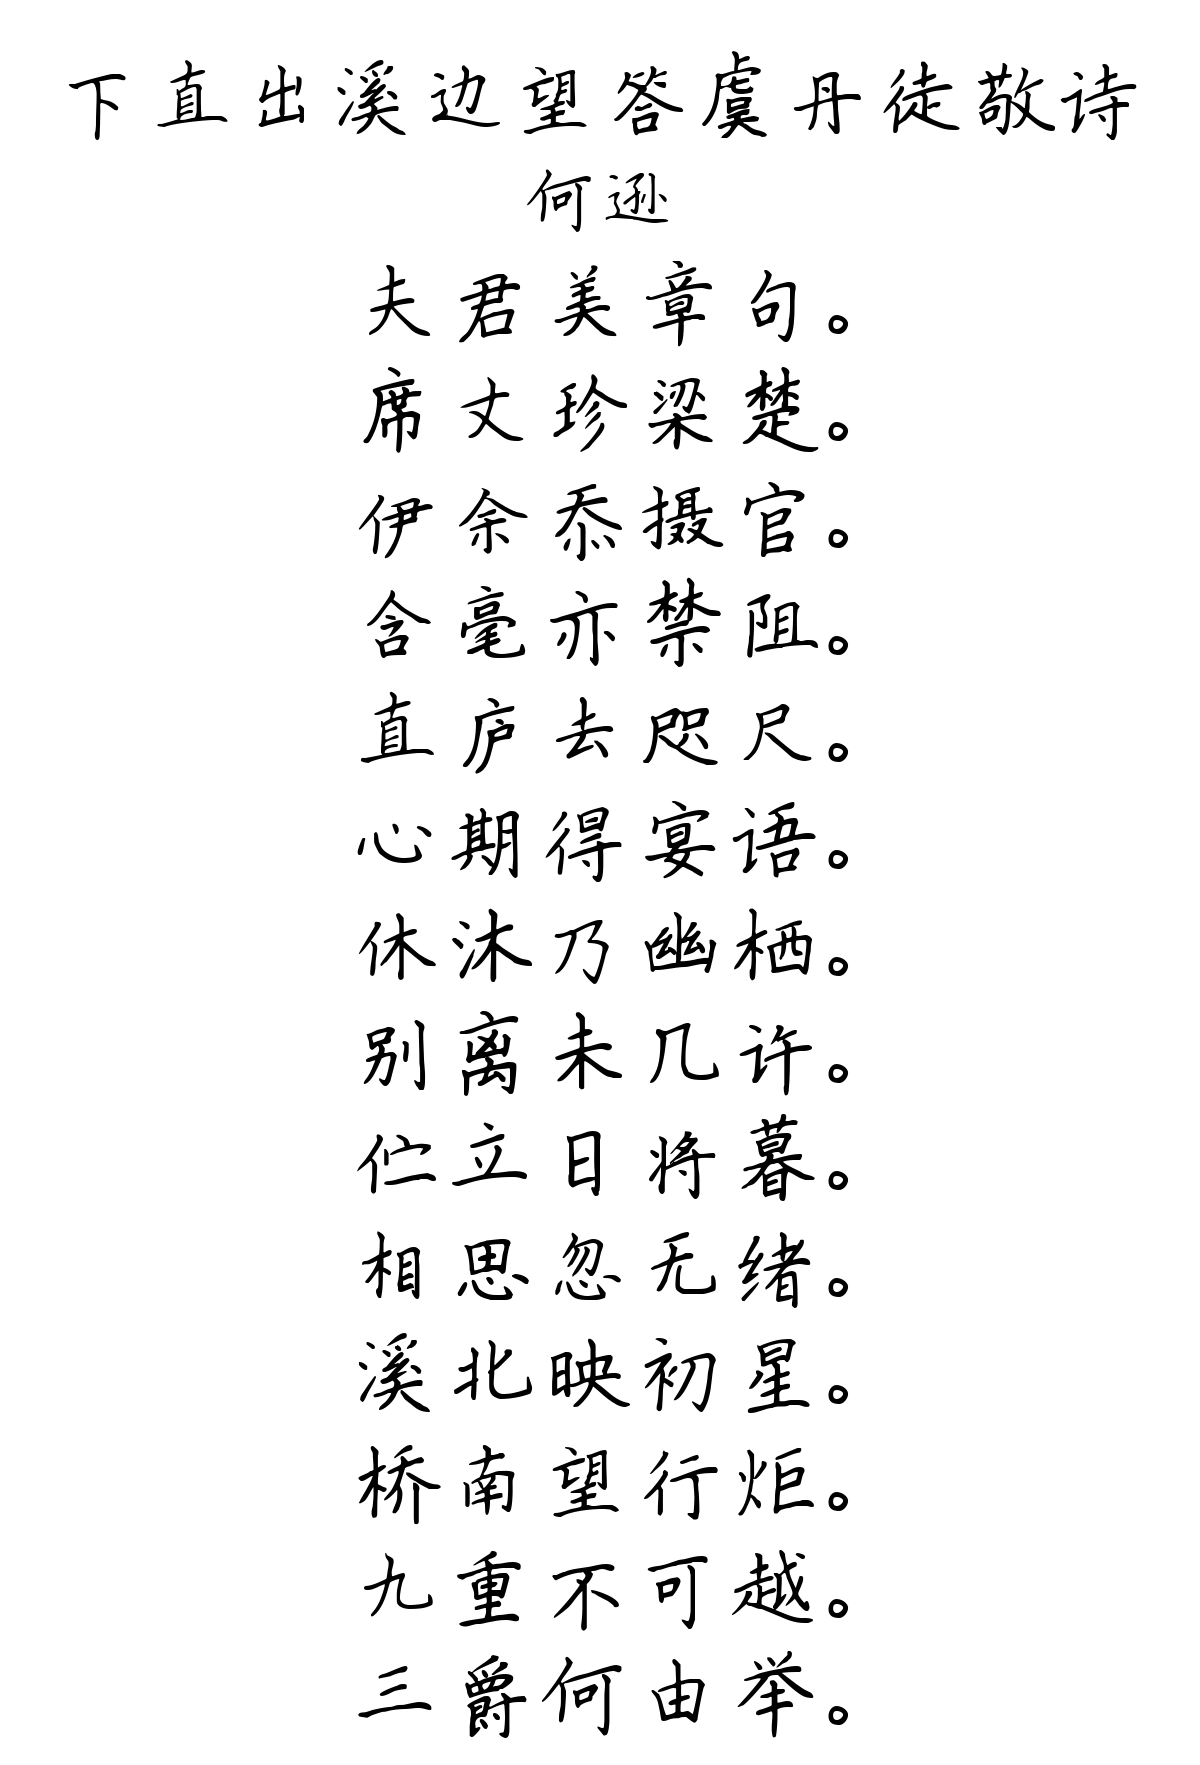 下直出溪边望答虞丹徒敬诗
何逊
夫君美章句。
席丈珍梁楚。
伊余忝摄官。
含毫亦禁阻。
直庐去咫尺。
心期得宴语。
休沐乃幽栖。
别离未几许。
伫立日将暮。
相思忽无绪。
溪北映初星。
桥南望行炬。
九重不可越。
三爵何由举。